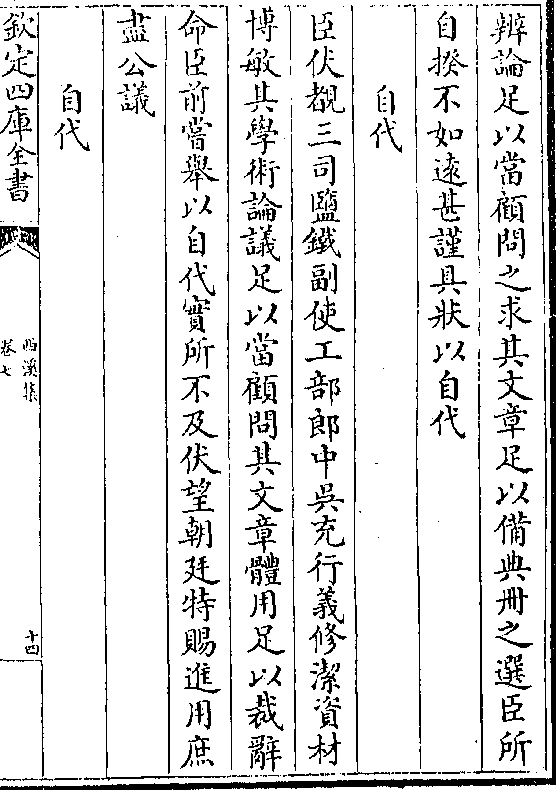 辨論足以當顧問之求其文章足以備典冊之選臣所
自揆不如遠甚謹具狀以自代
自代
臣伏覩三司鹽鐵副使工部郎中吳充行義修潔資材
博敏其學術論議足以當顧問其文章體用足以裁辭
命臣前嘗舉以自代實所不及伏望朝廷特賜進用庶
盡公議
自代
欽定四庫全書
西溪集
卷七
十四